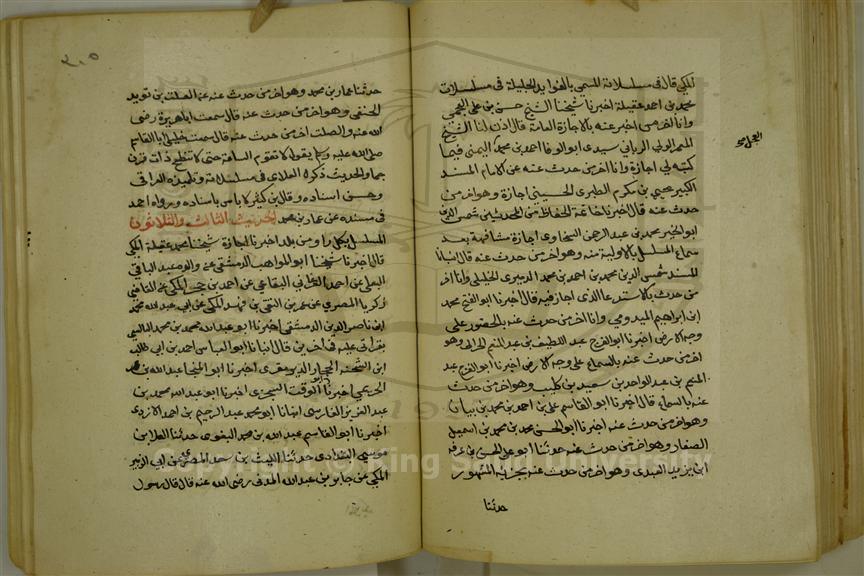 المكي قال في مسلسلاته المسمى بالفوايد الجليلة في مسلسلات
محمد بن احمد عقيلة اخبرنا شيخنا الشيخ حسن بن علي العجيمي
وانا اخر من اخبر عنه بالاجازة العامة قال اذن لنا الشيخ
المعمر الولي الرباني سيدي ابو الوفا احمد بن محمد العجل اليمني فيما
كتبه لي اجازة وانا اخر من حدث عنه عن الامام المسند
الكبير يحيى بن مكرم الطبري الحسيني اجازة وهو اخر من
حدث عنه قال اخبرنا خاتمة الحفاظ من المحدثين شمس الدين
ابو الخير محمد بن عبد الرحمن السخاوي اجازة مشافهة بعد
سماع المسلسل بالاولية منه وهو اخر من حدث عنه قال انبانا
المسند شمس الدين محمد بن احمد بن محمد الخليلي وانا اخر
من حدث عنه بالاستدعا الذي اجاز فيه قال اخبرنا ابو الفتح محمد
ابن ابراهيم الميدومي وانا اخر من حدث عنه بالحضور على
وجه الارض اخبرنا ابو الفرج عبد اللطيف بن عبد المنعم الحراني وهو
اخر من حدث عنه بالسماع على وجه الارض اخبرنا ابو الفرج عبد
المنعم بن عبد الواحد بن سعيد بن كليب وهو اخر من حدث
عنه بالسماع قال اخبرنا ابو القاسم علي بن احمد بن محمد بن بيان
وهو اخر من حدث عنه اخبرنا ابو الحسن محمد بن محمد بن اسمعيل
الصفار وهو اخر من حدث عنه حدثنا ابو علي الحسن بن عرفة
ابن يزيد العبدي وهو اخر من حدث عنه المشهور
حدثنا
حدثنا عمار بن محمد وهو اخر من حدث عنه عن الصلت بن قويد
الحنفي وهو اخر من حدث عنه قال سمعت ابا هريرة رضي
الله عنه والصلت اخر من حدث عنه قال سمعت خليلي ابا القاسم
صلى الله عليه وسلم يقول لا تقوم الساعة حتى لا تنطح ذات قرن
جما والحديث ذكره العلائي في مسلسلاته وتلميذه العراقي
وحسن اسناده وقال ابن كثير لا باس باسناده ورواه احمد
في مسنده عن عمار بن محمد الحديث الثالث والثلاثون
المسلسل بكل راو من بلد اخبرنا اجازة شيخنا محمد عقيلة المكي
قال اخبرنا شيخنا ابو المواهب الدمشقي عن والده عبد الباقي
البعلي عن احمد البقاعي عن احمد بن حجر المكي عن القاضي
زكريا المصري عن عمر بن التقي بن فهد المكي عن ابي عبد الله محمد
ابن ناصر الدين الدمشقي اخبرنا ابو عبد الله محمد بن محمد البالسي
بقراتي عليه في اخرين قال انبانا ابو العباس احمد بن ابي طالب
ابن الشحنة الحجار اخبرنا ابو المنجا عبد الله بن عمر
الحريمي اخبرنا ابو الوقت السجزي اخبرنا ابو عبد الله محمد بن
عبد العزيز الفارسي انبانا ابو محمد عبد الرحيم بن احمد الازدي
اخبرنا ابو القاسم عبد الله بن محمد البغوي حدثنا العلا بن
موسى البغدادي حدثنا الليث بن سعد المصري عن ابي الزبير
المكي عن جابر بن عبد الله المدني رضي الله عنه قال قال رسول
Copyright © King Saud University